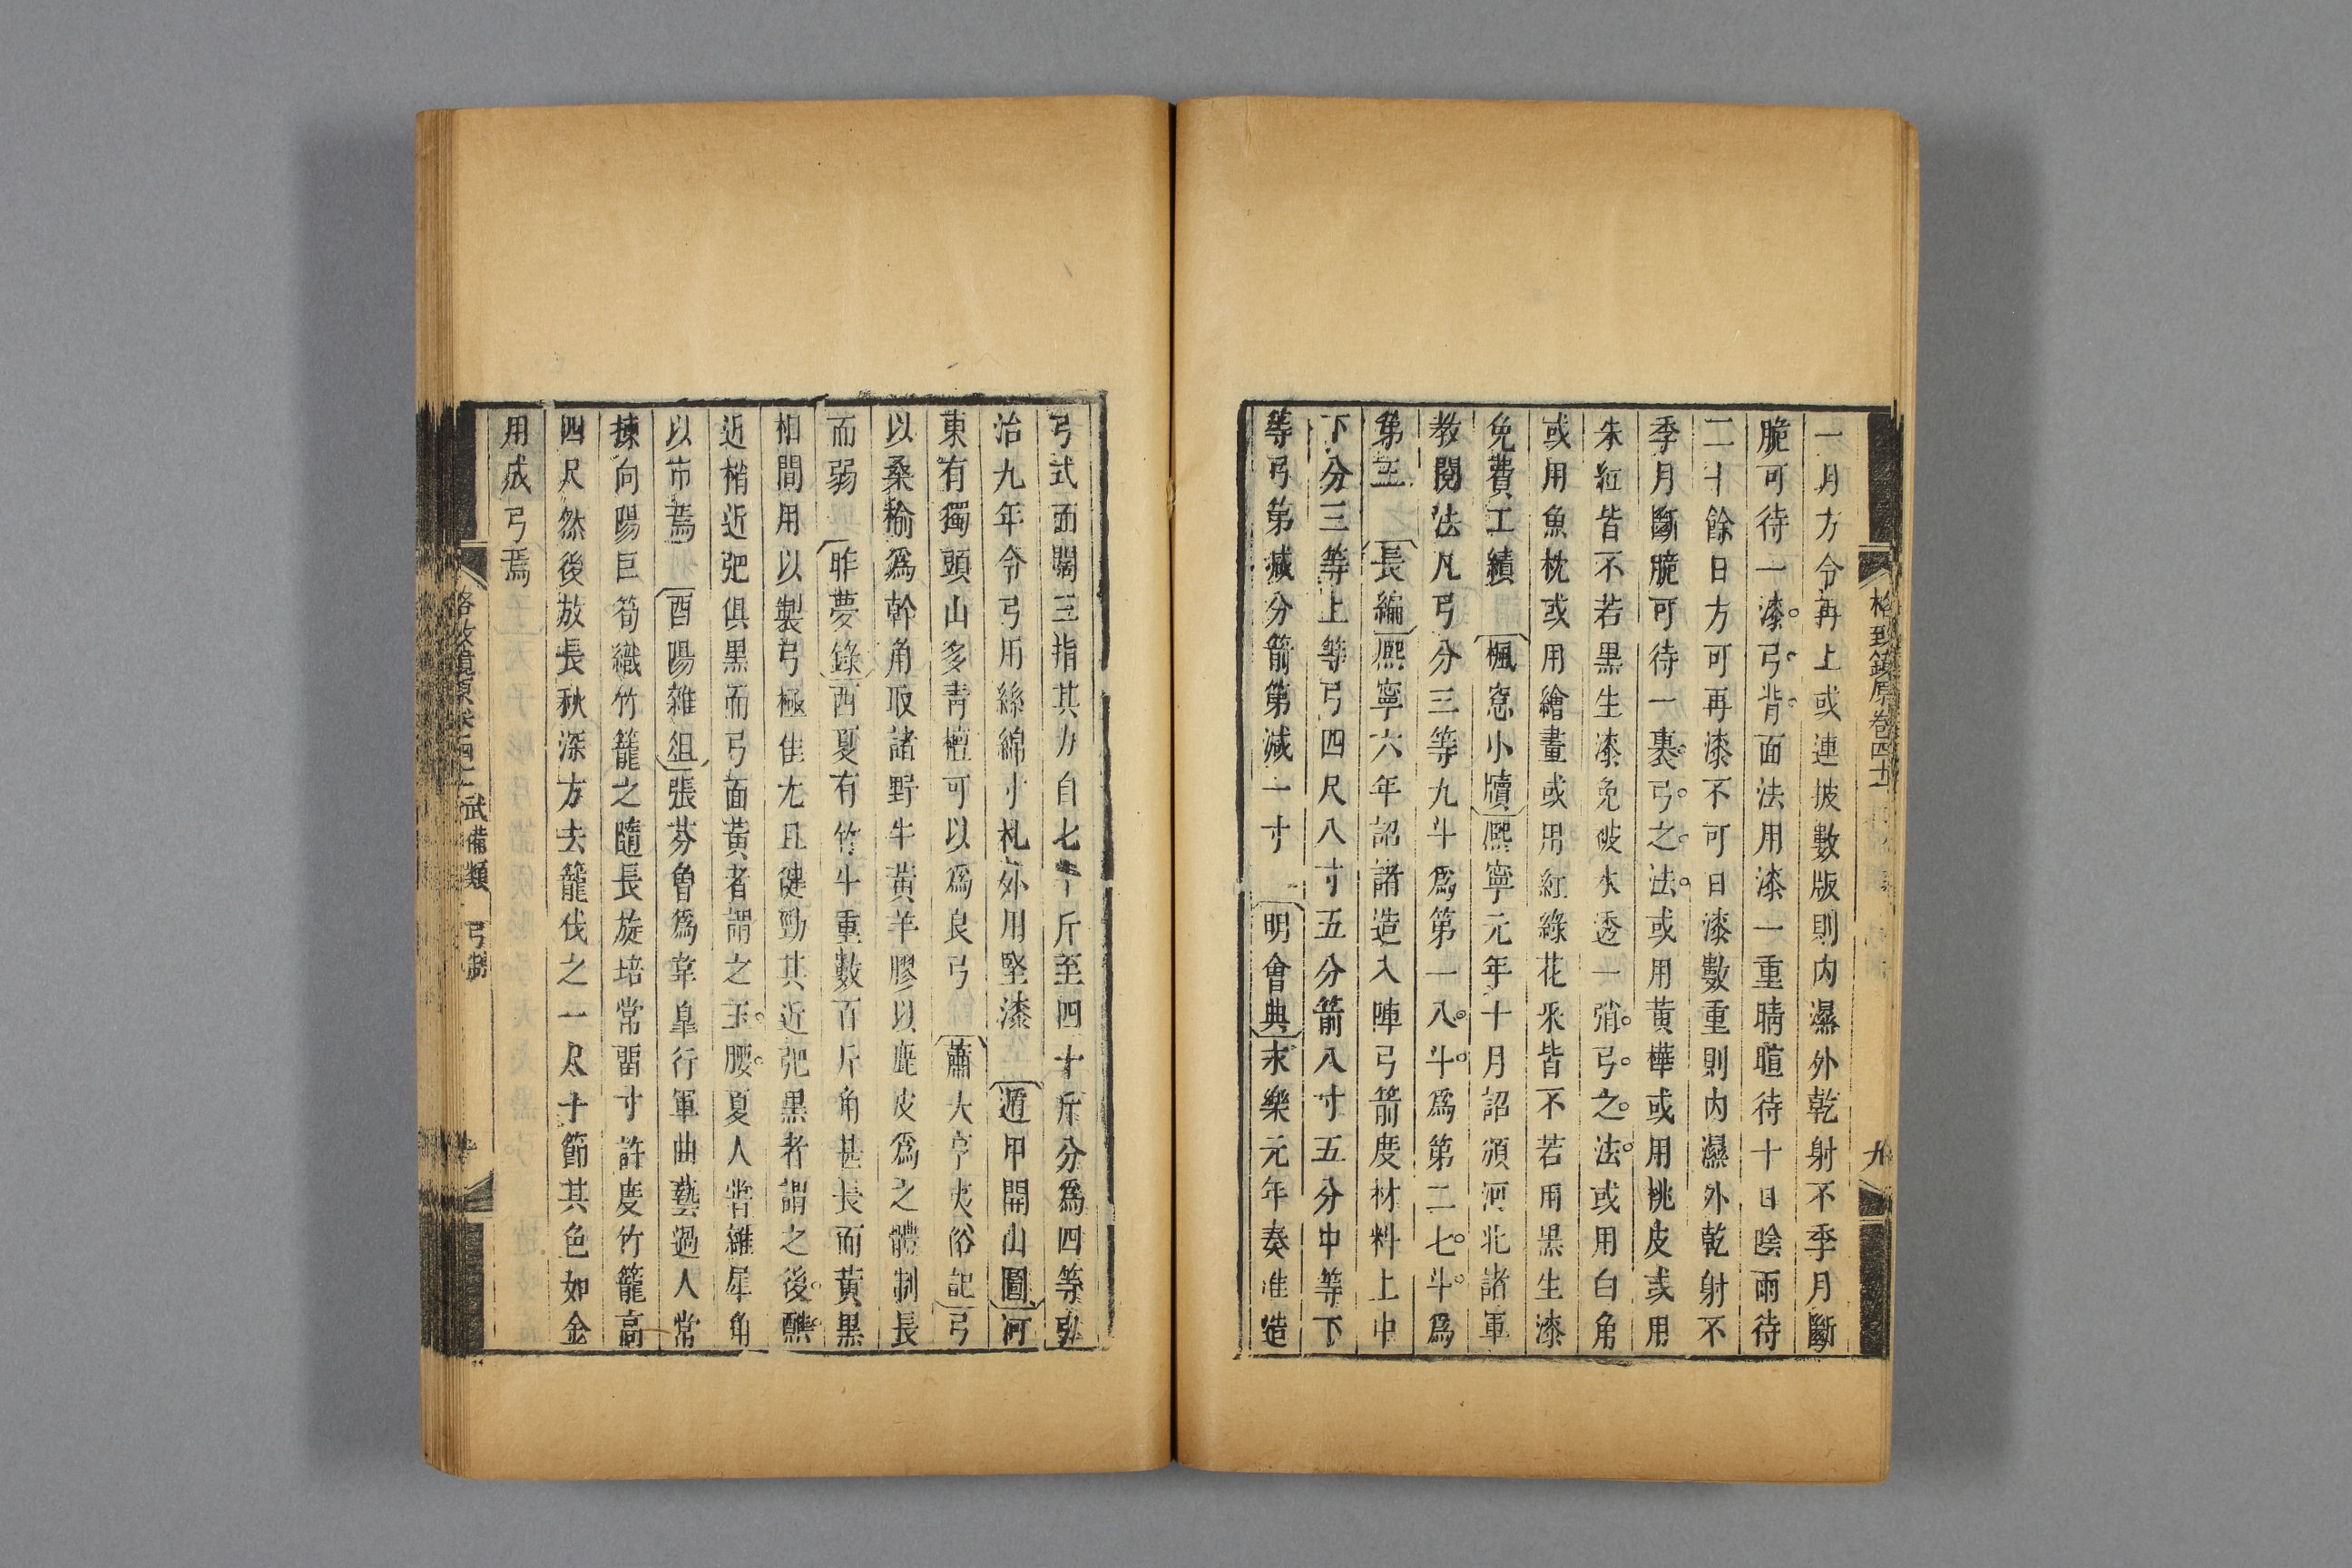 格致鏡原卷四十一
九
一月方令再上或連披數版則内濕外乾射不季月斷
脆可待一漆弓背面法用漆一重晴暄待十日陰雨待
二十餘日方可再漆不可日漆數重則内濕外乾射不
季月斷脆可待一裹弓之法或用黃樺或用桃皮或用
朱紅皆不若黑生漆免皴水透一弰弓之法或用白角
或用魚枕或用繪畫或用紅綠花釆皆不若用黑生漆
免費工績 楓窓小牘熙寧元年十月詔頒河北諸軍
教閱法凡弓分三等九斗爲第一八斗爲第二七斗爲
第三 長編熙寧六年詔諸造入陣弓箭度材料上中
下分三等上等弓四尺八寸五分箭八寸五分中等下
等弓第減分箭第減一寸 明會典永樂元年奏准造
弓式面闊三指其力自七十斤至四十斤分爲四等弘
治九年令弓用絲綿寸札外用堅漆 遁甲開山圖河
東有獨頭山多青檀可以爲良弓 蕭大亨夷俗記弓
以桑榆爲幹角取諸野牛黃羊膠以鹿皮爲之體制長
而弱 昨夢錄西夏有竹牛重數百斤角甚長而黃黑
相間用以製弓極佳尤且健勁其近弝黑者謂之後醮
近梢近弝俱黑而弓面黃者謂之玉腰夏人常雜犀角
以市焉 酉陽雜俎張芬曾爲韋臯行軍曲藝過人常
揀向陽巨筍織竹籠之隨長旋培常留寸許度竹籠高
四尺然後放長秋深方去籠伐之一尺十節其色如金
用成弓焉
格致鏡原卷四十一 武備類 弓制